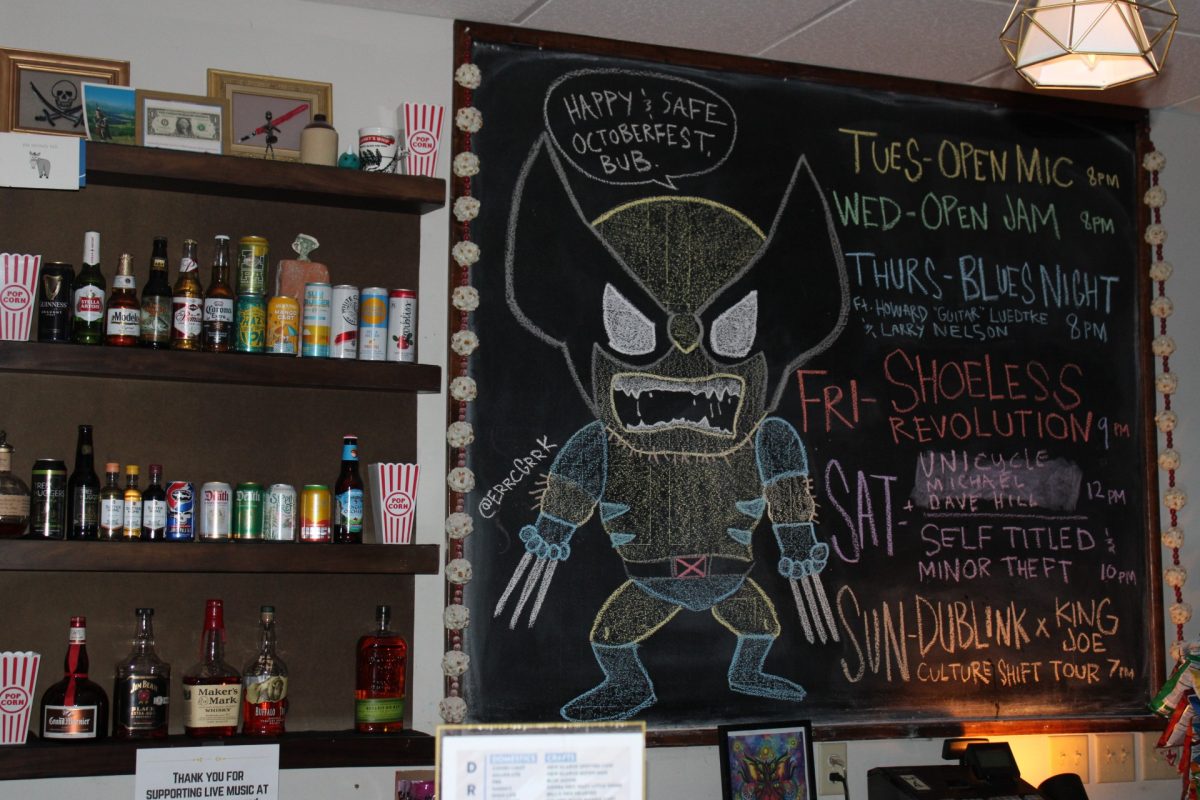 HAPPY & SAFE
OCTOBERFEST,
BUB.
TUES-OPEN MIC 8PM
WED-OPEN JAM 8PM
THURS-BLUES NIGHT
Ft. HOWARD "GUITAR" LUEDTKE
& LARRY NELSON 8PM
FRI- SHOELESS
REVOLUTION 9PM
SAT-
UNICYCLE
MICHAEL
+ DAVE HILL 12PM
SELF TITLED &
MINOR THEFT 10PM
SUN-DUBLINK x KING
JOE
CULTURE SHIFT TOUR 7PM
@ERRCGRRK
POP
CORN
POP
CORN
GUINNESS
STELLA
ARTOIS
Modelo
Corona
MANGO
CART
POP
CORN
Death
Death
JIM BEAM
BLACK
Maker's
Mark
WHISKY
BUFFALO
Grand Marnier
POP
CORN
THANK YOU FOR
SUPPORTING LIVE MUSIC AT
DOMESTICS
CRAFTS
D
R